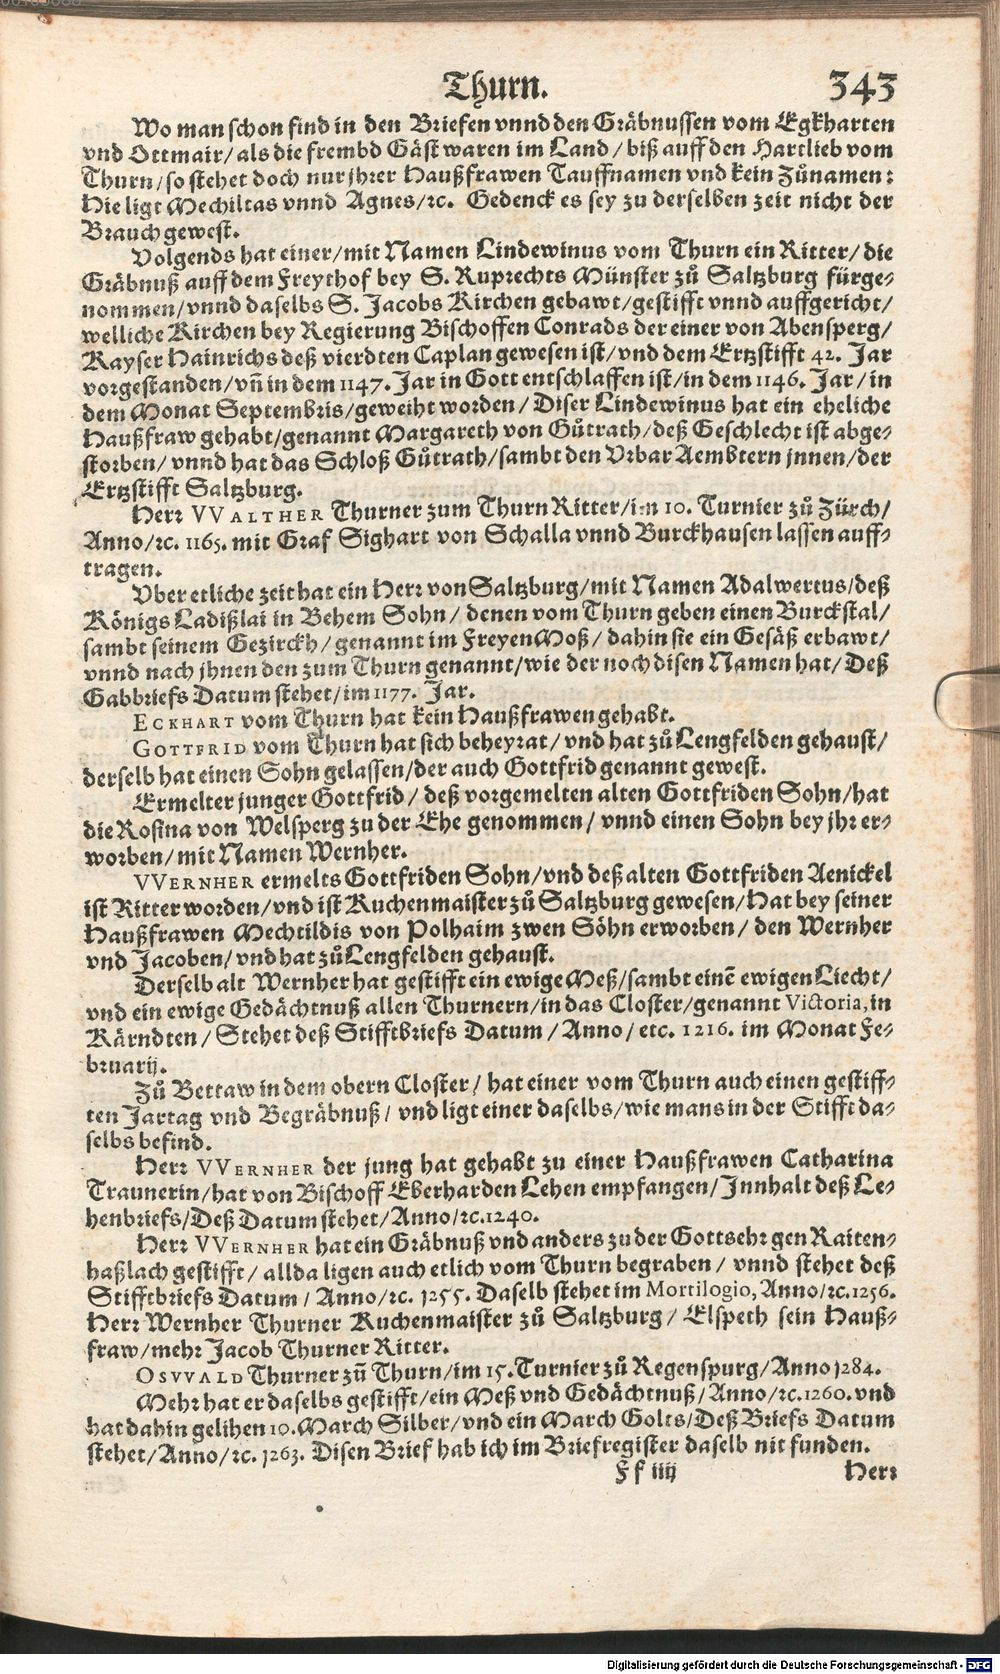 Thurn. 343
Wo man schon find in den Briefen vnnd den Gräbnussen vom Egkharten
vnd Ottmair/ als die frembd Gäst waren im Land/ biß auff den Hartlieb vom
Thurn/ so stehet doch nur jhrer Haußfrawen Tauffnamen vnd kein Zůnamen:
Hie ligt Mechiltas vnnd Agnes/ ꝛc. Gedenck es sey zu derselben zeit nicht der
Brauch gewest.
Volgends hat einer/ mit Namen Lindewinus vom Thurn ein Ritter/ die
Gräbnuß auff dem Freythof bey S. Ruprechts Münster zů Saltzburg fürge⸗
nommen/ vnnd daselbs S. Jacobs Kirchen gebawt/ gestifft vnnd auffgericht/
welliche Kirchen bey Regierung Bischoffen Conrads der einer von Abensperg/
Kayser Hainrichs deß vierdten Caplan gewesen ist/ vnd dem Ertzstifft 42. Jar
vorgestanden/ vñ in dem 1147. Jar in Gott entschlaffen ist/ in dem 1146. Jar/ in
dem Monat Septembris/ geweiht worden/ Diser Lindewinus hat ein eheliche
Haußfraw gehabt/ genannt Margareth von Gůtrath/ deß Geschlecht ist abge⸗
storben/ vnnd hat das Schloß Gůtrath/ sambt den Vrbar Aembtern jnnen/ der
Ertzstifft Saltzburg.
Herꝛ VVALTHER Thurner zum Thurn Ritter/ im 10. Turnier zů Zürch/
Anno/ ꝛc. 1165. mit Graf Sighart von Schalla vnnd Burckhausen lassen auff⸗
tragen.
Vber etliche zeit hat ein Herꝛ von Saltzburg/ mit Namen Adalwertus/ deß
Königs Ladißlai in Behem Sohn/ denen vom Thurn geben einen Burckstal/
sambt seinem Gezirckh/ genannt im Freyen Moß/ dahin sie ein Gesäß erbawt/
vnnd nach jhnen den zum Thurn genannt/ wie der noch disen Namen hat/ Deß
Gabbriefs Datum stehet/ im 1177. Jar.
ECKHART vom Thurn hat kein Haußfrawen gehabt.
GOTTFRID vom Thurn hat sich beheyrat/ vnd hat zů Lengfelden gehaust/
derselb hat einen Sohn gelassen/ der auch Gottfrid genannt gewest.
Ermelter junger Gottfrid/ deß vorgemelten alten Gottfriden Sohn/ hat
die Rosina von Welsperg zu der Ehe genommen/ vnnd einen Sohn bey jhr er⸗
worben/ mit Namen Wernher.
VVERNHER ermelts Gottfriden Sohn/ vnd deß alten Gottfriden Aenickel
ist Ritter worden/ vnd ist Kuchenmaister zů Saltzburg gewesen/ Hat bey seiner
Haußfrawen Mechtildis von Polhaim zwen Söhn erworben/ den Wernher
vnd Jacoben/ vnd hat zů Lengfelden gehaust.
Derselb alt Wernher hat gestifft ein ewige Meß/ sambt einẽ ewigen Liecht/
vnd ein ewige Gedächtnuß allen Thurnern/ in das Closter/ genannt Victoria, in
Kärndten/ Stehet deß Stifftbriefs Datum/ Anno/ etc. 1216. im Monat Fe⸗
bruarij.
Zů Bettaw in dem obern Closter/ hat einer vom Thurn auch einen gestiff⸗
ten Jartag vnd Begräbnuß/ vnd ligt einer daselbs/ wie mans in der Stifft da⸗
selbs befind.
Herꝛ VVERNHER der jung hat gehabt zu einer Haußfrawen Catharina
Traunerin/ hat von Bischoff Eberharden Lehen empfangen/ Jnnhalt deß Le⸗
henbriefs/ Deß Datum stehet/ Anno/ ꝛc. 1240.
Herꝛ VVERNHER hat ein Gräbnuß vnd anders zu der Gottsehr gen Raiten⸗
haßlach gestifft/ allda ligen auch etlich vom Thurn begraben/ vnnd stehet deß
Stifftbriefs Datum/ Anno/ ꝛc. 1255. Daselb stehet im Mortilogio, Anno/ ꝛc. 1256.
Herꝛ Wernher Thurner Kuchenmaister zů Saltzburg/ Elspeth sein Hauß⸗
fraw/ mehr Jacob Thurner Ritter.
OSVVALD Thurner zũ Thurn/ im 15. Turnier zů Regenspurg/ Anno 1284.
Mehr hat er daselbs gestifft/ ein Meß vnd Gedächtnuß/ Anno/ ꝛc. 1260. vnd
hat dahin gelihen 10. March Silber/ vnd ein March Golts/ Deß Briefs Datum
stehet/ Anno/ ꝛc. 1263. Disen Brief hab ich im Briefregister daselb nit funden.
Ff iiij Herꝛ
Digitalisierung gefördert durch die Deutsche Forschungsgemeinschaft - DFG